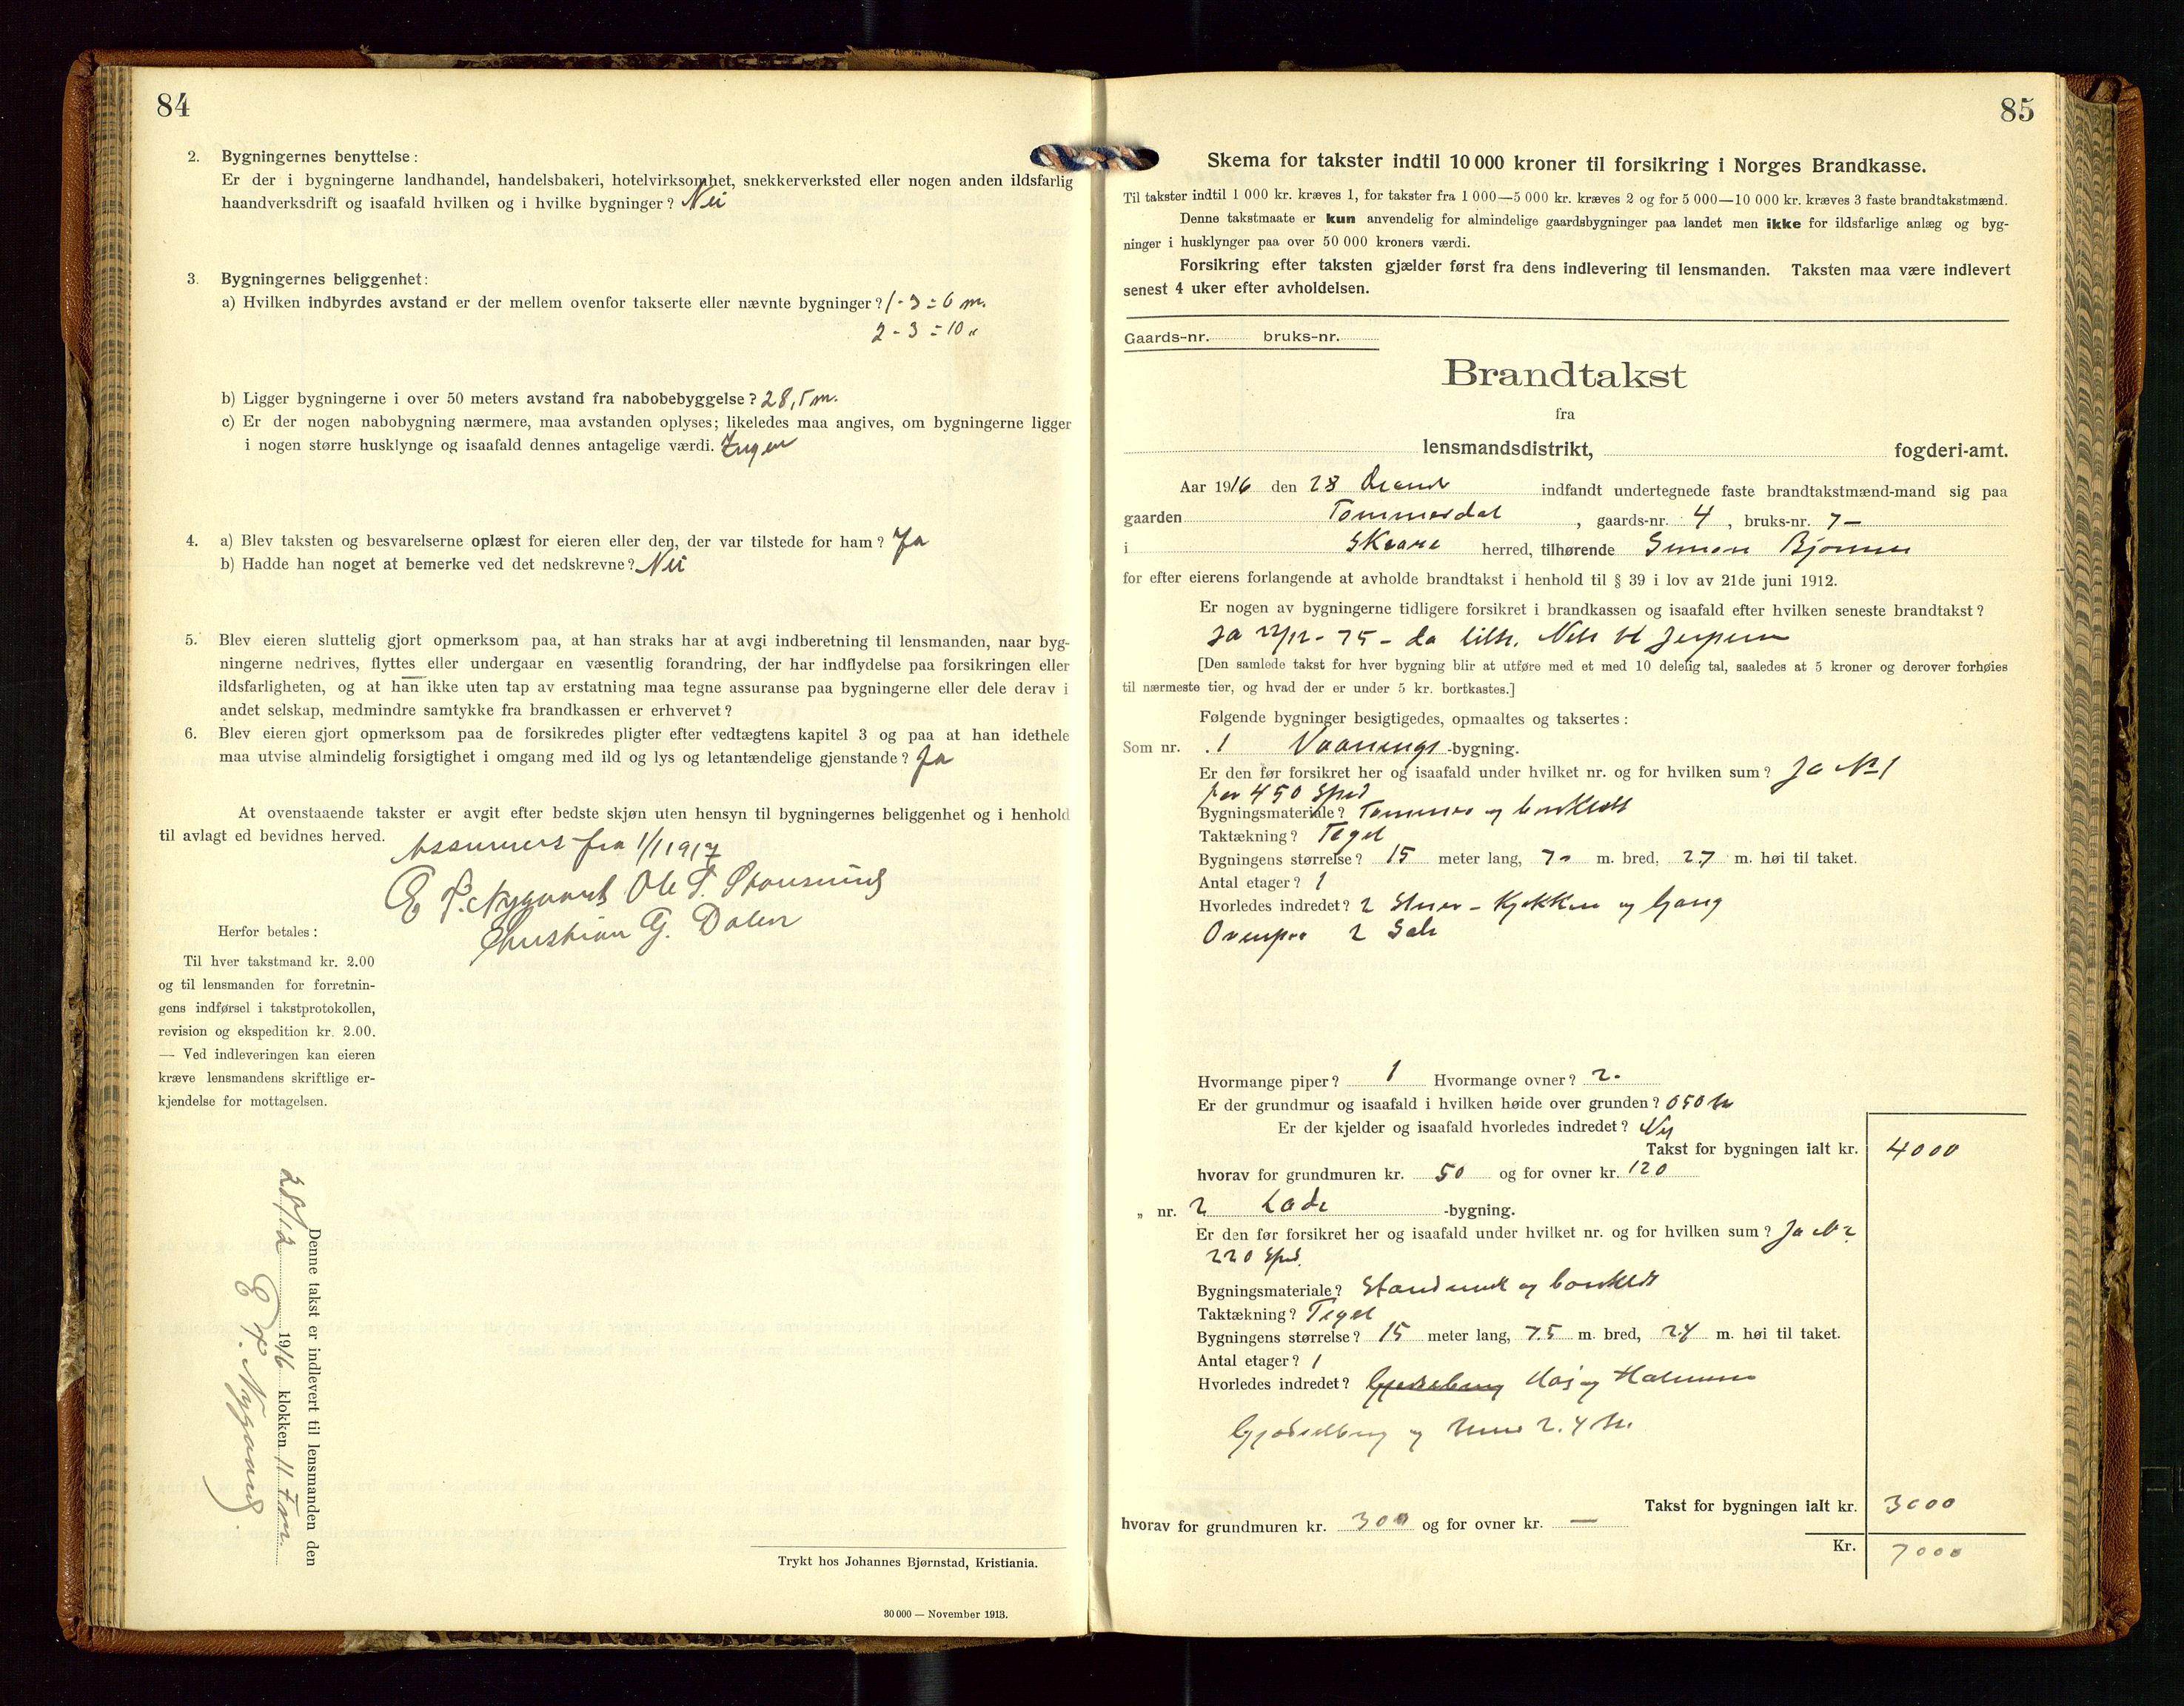 84
2. Bygningernes benyttelse:
Er der i bygningerne landhandel, handelsbakeri, hotelvirksomhet, snekkerverksted eller nogen anden ildsfarlig
haandverksdrift og isaafald hvilken og i hvilke bygninger? Nei
3. Bygningernes beliggenhet:
a) Hvilken indbyrdes avstand er der mellem ovenfor takserte eller nævnte bygninger? 1 - 3 = 6 m.
2 - 3 = 10 "
b) Ligger bygningerne i over 50 meters avstand fra nabobebyggelse? 28,5 m.
c) Er der nogen nabobygning nærmere, maa avstanden oplyses; likeledes maa angives, om bygningerne ligger
i nogen større husklynge og isaafald dennes antagelige værdi. Ingen
4. a) Blev taksten og besvarelserne oplæst for eieren eller den, der var tilstede for ham? Ja
b) Hadde han noget at bemerke ved det nedskrevne? Nei
5. Blev eieren sluttelig gjort opmerksom paa, at han straks har at avgi indberetning til lensmanden, naar byg-
ningerne nedrives, flyttes eller undergaar en væsentlig forandring, der har indflydelse paa forsikringen eller
ildsfarligheten, og at han ikke uten tap av erstatning maa tegne assuranse paa bygningerne eller dele derav i
andet selskap, medmindre samtykke fra brandkassen er erhvervet?
6. Blev eieren gjort opmerksom paa de forsikredes pligter efter vedtægtens kapitel 3 og paa at han idethele
maa utvise almindelig forsigtighet i omgang med ild og lys og letantændelige gjenstande? Ja
At ovenstaaende takster er avgit efter bedste skjøn uten hensyn til bygningernes beliggenhet og i henhold
til avlagt ed bevidnes herved.
Assureres fra 1/1 1917
E T. Nygaard Ole T.
Christian G. Dalen
Herfor betales:
Til hver takstmand kr. 2.00
og til lensmanden for forretnin-
gens indførsel i takstprotokollen,
revision og ekspedition kr. 2.00.
— Ved indleveringen kan eieren
kræve lensmandens skriftlige er-
kjendelse for mottagelsen.
Denne takst er indlevert til lensmanden den
28/12 1916 klokken 11 fm.
E T. Nygaard.
Trykt hos Johannes Bjørnstad, Kristiania.
30 000 — November 1913.
85
Skema for takster indtil 10 000 kroner til forsikring i Norges Brandkasse.
Til takster indtil 1 000 kr. kræves 1, for takster fra 1 000—5 000 kr. kræves 2 og for 5 000—10 000 kr. kræves 3 faste brandtakstmænd.
Denne takstmaate er kun anvendelig for almindelige gaardsbygninger paa landet men ikke for ildsfarlige anlæg og byg-
ninger i husklynger paa over 50 000 kroners værdi.
Forsikring efter taksten gjælder først fra dens indlevering til lensmanden. Taksten maa være indlevert
senest 4 uker efter avholdelsen.
Gaards-nr. bruks-nr.
Brandtakst
fra
lensmandsdistrikt, fogderi-amt.
Aar 1916 den 28 indfandt undertegnede faste brandtakstmænd-mand sig paa
gaarden Tømmerdal, gaards-nr. 4, bruks-nr. 7 -
i Skaare herred, tilhørende Simon
for efter eierens forlangende at avholde brandtakst i henhold til § 39 i lov av 21de juni 1912.
Er nogen av bygningerne tidligere forsikret i brandkassen og isaafald efter hvilken seneste brandtakst?
Ja 22/12 - 75 - da tilh. Nels
[Den samlede takst for hver bygning blir at utføre med et med 10 delelig tal, saaledes at 5 kroner og derover forhøies
til nærmeste tier, og hvad der er under 5 kr. bortkastes.]
Følgende bygninger besigtigedes, opmaaltes og taksertes:
Som nr. 1 Vaanings-bygning.
Er den før forsikret her og isaafald under hvilket nr. og for hvilken sum? Ja No 1
for 450 Spd
Bygningsmateriale? Tømmer og bordklædt
Taktækning? Tegel
Bygningens størrelse? 15 meter lang, 7 - m. bred, 2.7 m. høi til taket.
Antal etager? 1
Hvorledes indredet? 2 Stuer - Kjøkken og Gang
Ovenpaa 2 Sale
Hvormange piper? 1 Hvormange ovner? 2.
Er der grundmur og isaafald i hvilken høide over grunden? 0.50 m
Er der kjelder og isaafald hvorledes indredet? Nei
Takst for bygningen ialt kr. 4000
hvorav for grundmuren kr. 50 og for ovner kr. 120
„ nr. 2 Lade -bygning.
Er den før forsikret her og isaafald under hvilket nr. og for hvilken sum? Ja N 2
220 Spd.
Bygningsmateriale? og bordklædt
Taktækning? Tegel
Bygningens størrelse? 15 meter lang, 7.5 m. bred, 2.4 m. høi til taket.
Antal etager? 1
Hvorledes indredet? Høi og Halmrum
Gjødselbing og 2.4 m.
Takst for bygningen ialt kr. 3000
hvorav for grundmuren kr. 300 og for ovner kr. —
Kr. 7000